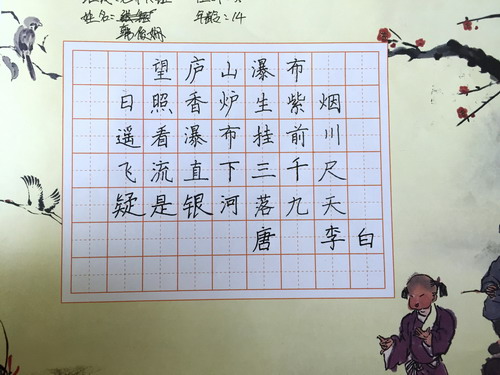 姓名: 年龄:14
望庐山瀑布
日照香炉生紫烟
遥看瀑布挂前川
飞流直下三千尺
疑是银河落九天
唐 李白